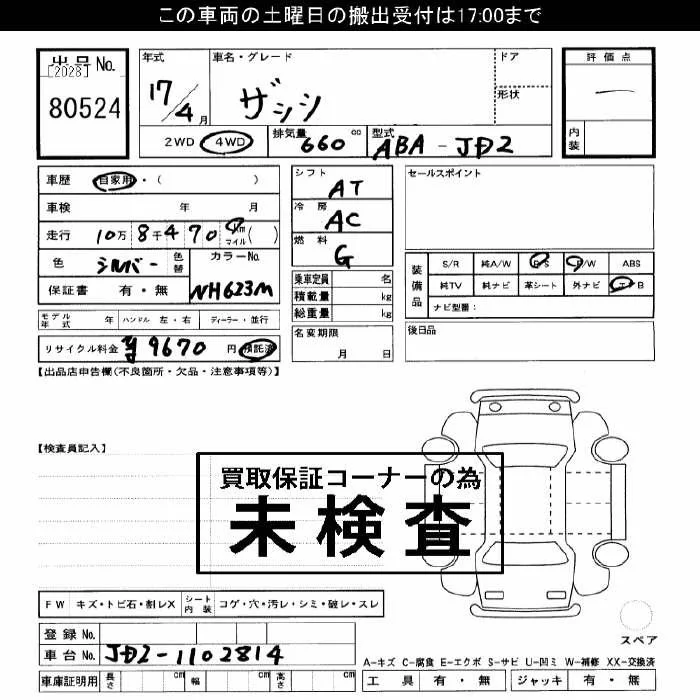 この車両の土曜日の搬出受付は17:00まで
出品No.
[2028]
80524
年式
17/4月
車名・グレード
ザッツ
ドア
形状
評価点
―
内装
2WD 4WD
排気量 660 cc
型式 ABA - JD2
車歴 自家用・( )
車検 年 月
走行 10万 8千470 km マイル( )
色 シルバー 色替
カラーNo. NH623M
保証書 有・無
モデル年式 年 ハンドル 左・右 ディーラー・並行
リサイクル料金 9670 円 預託済
シフト AT
冷房 AC
燃料 G
乗車定員 名
積載量 kg
総重量 kg
名変期限
月 日
セールスポイント
装備品
S/R 純A/W P/S P/W ABS
純TV 純ナビ 革シート 外ナビ エアB
ナビ型番:
後日品
【出品店申告欄(不良箇所・欠品・注意事項等)】
【検査員記入】
買取保証コーナーの為
未検査
FW キズ・トビ石・割レX シート内装 コゲ・穴・汚レ・シミ・破レ・スレ
登録No.
車台No. JD2-1102814
車庫証明用 長さ cm 幅 cm 高さ cm
スペア
A-キズ C-腐食 E-エクボ S-サビ U-凹ミ W-補修 XX-交換済
工具 有・無 ジャッキ 有・無